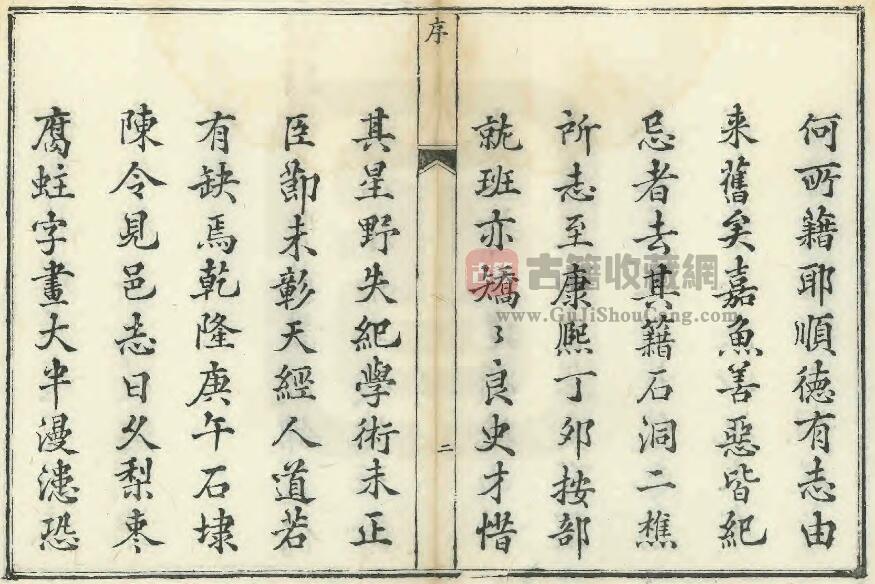 何所藉耶順徳有志由
来舊矣嘉魚善惡皆紀
忌者去其籍石洞二樵
所志至康熙丁夘按部
就班亦矯〻良史才惜
序
二
其星野失紀學術未正
臣節未彰天經人道若
有缺焉乾隆庚午石埭
陳令見邑志日久梨枣
腐蛀字畫大半漫漶恐
古籍收藏網
www.GuJiShouCang.com